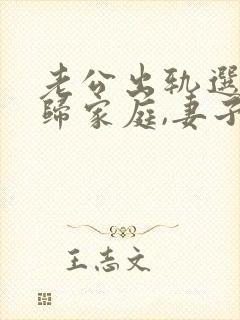 老公出轨選
歸家庭,妻子
王志文